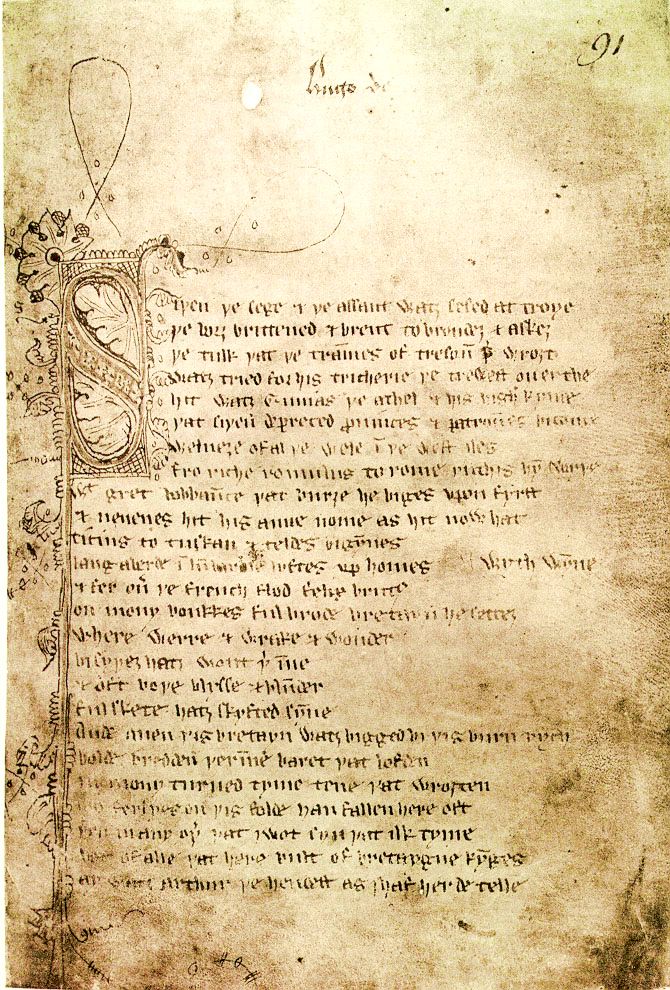 91
Hugo de
Siþen þe sege & þe assaut watz sesed at troye
þe borȝ brittened & brent to brondeȝ & askez
þe tulk þat þe trāmes of tresoū þ̄ wroȝt
watz tried for his tricherie þe trewest on erthe
hit watz Ennias þe athel & his highe kynde
þat siþen depreced ꝓuinces & patroūes bicome
welneȝe of al þe wele ī þe west iles
fro riche romulus to rome ricchis hȳ swyþe
gret bobbaūce þat burȝe he biges vpon fyrst
& neuenes hit his aune nome as hit now hat
ticius to tuskan & teldes bigȳnes
langaberde ī lumbardie lyftes vp homes wyth wȳne
& fer oū þe french flod felix brutus
on mony bonkkes ful brode bretayn he settez
where werre & wrake & wonder
bi syþez hatz wont þ̄ īne
& oft boþe blysse & blūder
ful skete hatz skyfted sȳne
Ande quen þis bretayn watz bigged bi þis burn rych
bolde bredden þerīne baret þat lofden
in mony turned tyme tene þat wroȝten
mo ferlyes on þis folde han fallen here oft
þen in any oþ̄ þat I wot syn þat ilk tyme
bot of alle þat here bult of bretaygne kȳges
ay watz arthur þe hendest as I haf herde telle